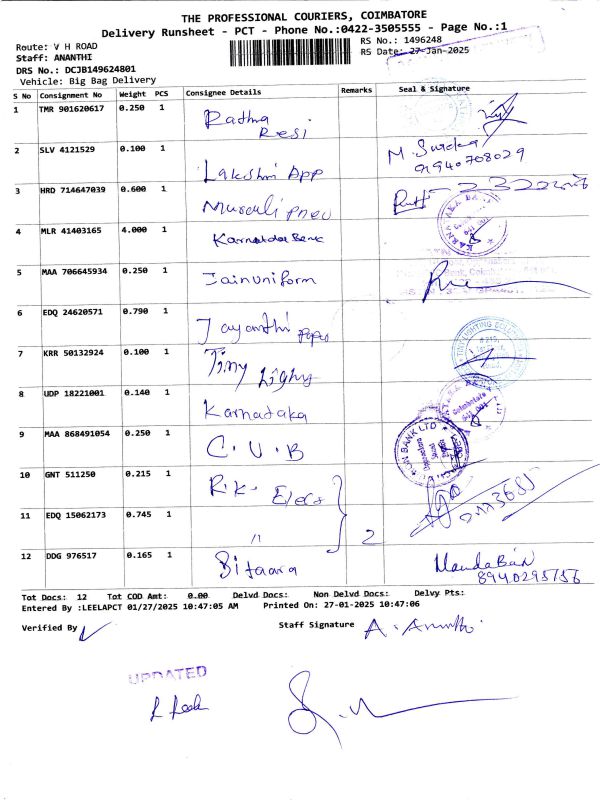 THE PROFESSIONAL COURIERS, COIMBATORE
Delivery Runsheet - PCT - Phone No.:0422-3505555 - Page No.:1
Route: V H ROAD
RS No.: 1496248
Staff: ANANTHI
RS Date: 27-Jan-2025
DRS No.: DCJB149624801
Vehicle: Big Bag Delivery
S No Consignment No Weight PCS Consignee Details Remarks Seal & Signature
1 TMR 901620617 0.250 1 Rathna
Resi
2 SLV 4121529 0.100 1 Lakshmi App
M. Sureka
9194070 8029
3 HRD 714647039 0.600 1 Murali
4 MLR 41403165 4.000 1 Karnataka Bank
5 MAA 706645934 0.250 1 Jain uniform
6 EDQ 24620571 0.790 1 Jayanthi
7 KRR 50132924 0.100 1 Tiny Lighy
8 UDP 18221001 0.140 1 Karnataka
9 MAA 868491054 0.250 1 C. U. B
10 GNT 511250 0.215 1 R.K. Elecs
11 EDQ 15062173 0.745 1 " 2
12 DDG 976517 0.165 1 Sitaara
8940295756
Tot Docs: 12 Tot COD Amt: 0.00 Delvd Docs: Non Delvd Docs: Delvy Pts:
Entered By :LEELAPCT 01/27/2025 10:47:05 AM Printed On: 27-01-2025 10:47:06
Verified By Staff Signature A. Ananthi
UPDATED